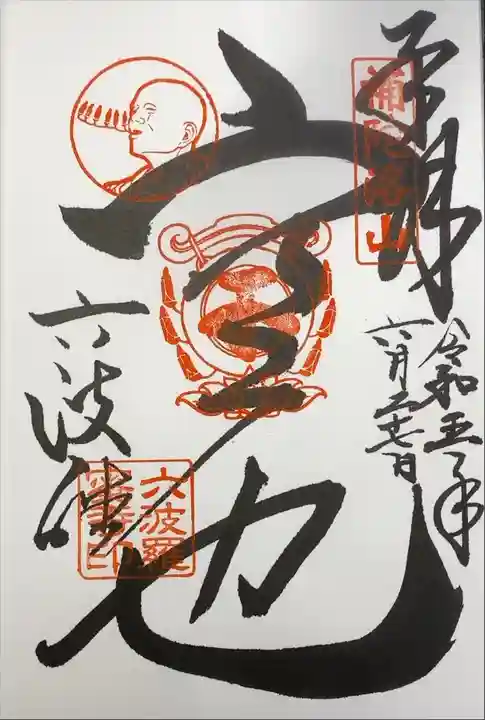 奉拝
補陀洛山
令和五年
六月二十七日
空也
六波羅
六波羅
蜜寺印